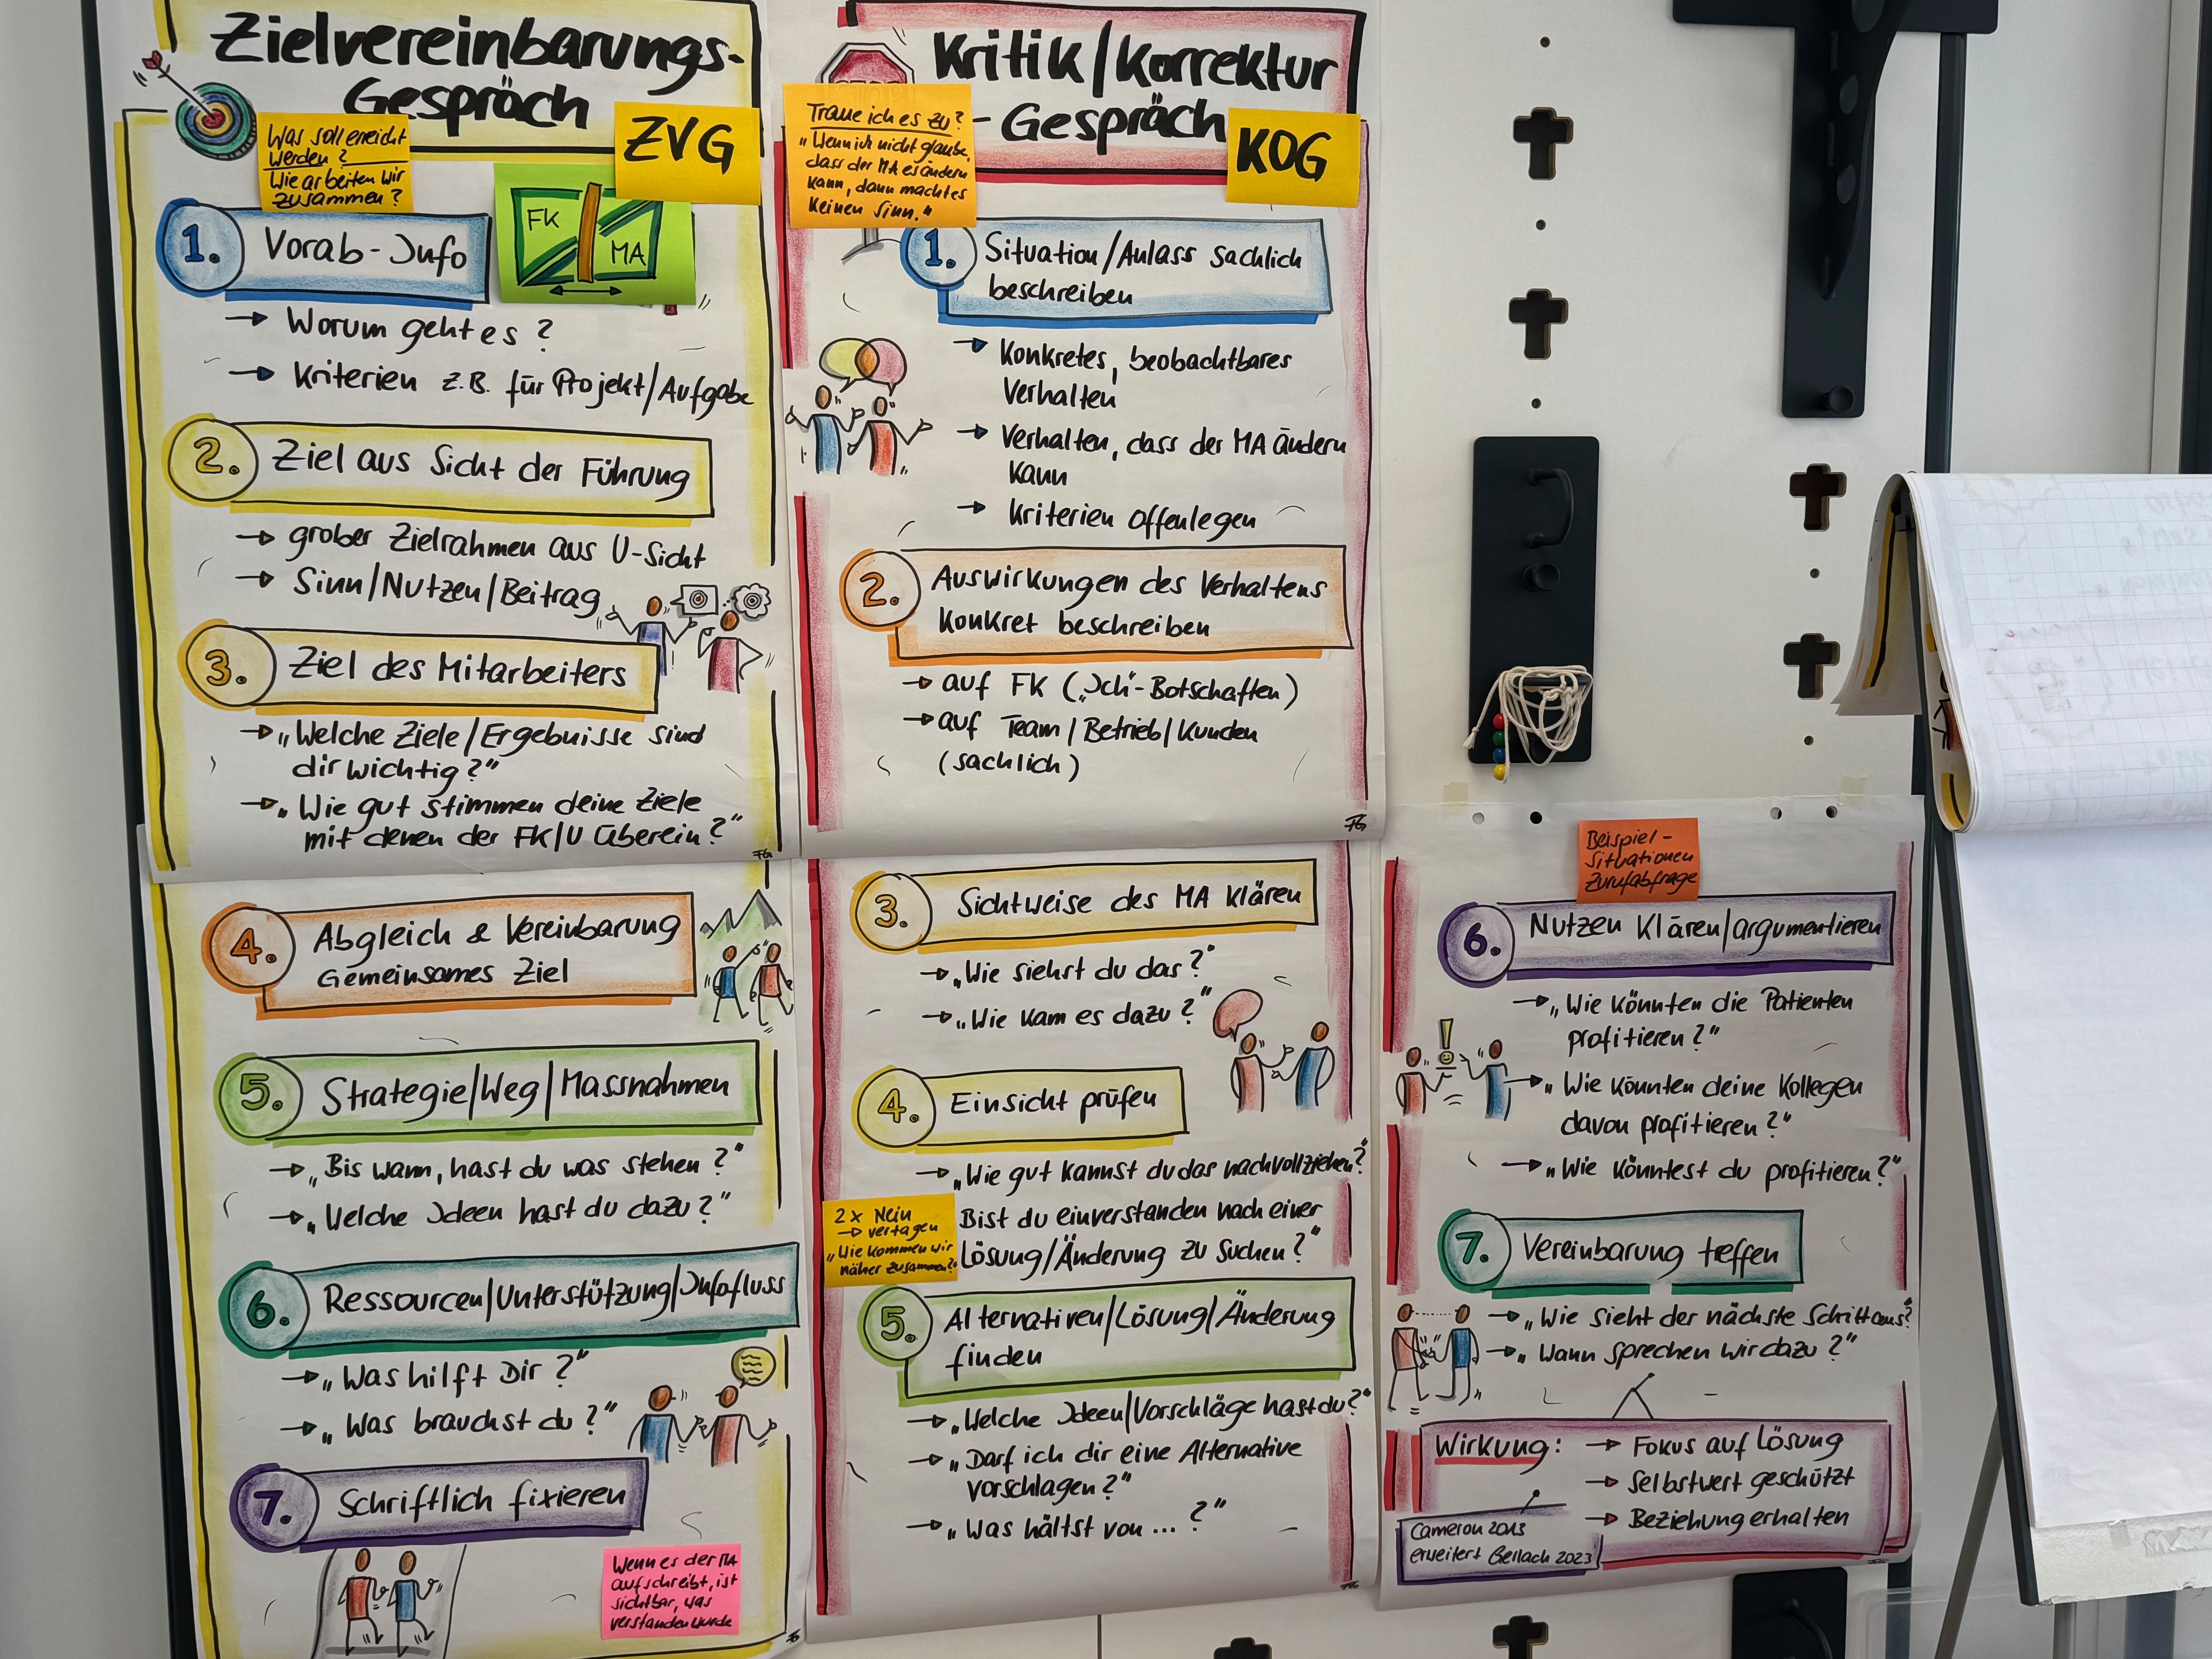 Zielvereinbarungs-
Gespräch
ZVG
Was soll erreicht
werden?
Wie arbeiten wir
zusammen?
FK
MA
1. Vorab-Info
→ Worum geht es?
→ Kriterien z.B. für Projekt/Aufgabe
2. Ziel aus Sicht der Führung
→ grober Zielrahmen aus U-Sicht
→ Sinn/Nutzen/Beitrag
3. Ziel des Mitarbeiters
→ „Welche Ziele/Ergebnisse sind
dir wichtig?"
→ „Wie gut stimmen deine Ziele
mit denen der FK/U überein?"
FG
4. Abgleich & Vereinbarung
Gemeinsames Ziel
5. Strategie/Weg/Massnahmen
→ „Bis wann, hast du was stehen?"
→ „Welche Ideen hast du dazu?"
6. Ressourcen/Unterstützung/Infofluss
→ „Was hilft Dir?"
→ „Was brauchst du?"
7. Schriftlich fixieren
Wenn es der MA
aufschreibt, ist
sichtbar, was
verstanden wurde
Kritik/Korrektur
-Gespräch
KOG
Traue ich es zu?
„Wenn ich nicht glaube,
dass der MA es ändern
kann, dann macht es
keinen Sinn."
1. Situation/Anlass sachlich
beschreiben
→ Konkretes, beobachtbares
Verhalten
→ Verhalten, dass der MA ändern
kann
→ Kriterien offenlegen
2. Auswirkungen des Verhaltens
konkret beschreiben
→ auf FK („Ich"-Botschaften)
→ auf Team/Betrieb/Kunden
(sachlich)
FG
3. Sichtweise des MA klären
→ „Wie siehst du das?"
→ „Wie kam es dazu?"
4. Einsicht prüfen
→ „Wie gut kannst du das nachvollziehen?"
Bist du einverstanden nach einer
Lösung/Änderung zu suchen?"
2x Nein
→ vertagen
„Wie kommen wir
näher zusammen?"
5. Alternativen/Lösung/Änderung
finden
→ „Welche Ideen/Vorschläge hast du?"
→ „Darf ich dir eine Alternative
vorschlagen?"
→ „Was hältst von ... ?"
Beispiel-
Situationen
Zurufabfrage
6. Nutzen klären/argumentieren
→ „Wie könnten die Patienten
profitieren?"
→ „Wie könnten deine Kollegen
davon profitieren?"
→ „Wie könntest du profitieren?"
7. Vereinbarung treffen
→ „Wie sieht der nächste Schritt aus?"
→ „Wann sprechen wir dazu?"
Wirkung: → Fokus auf Lösung
→ Selbstwert geschützt
→ Beziehung erhalten
Cameron 2013
erweitert Gerlach 2023